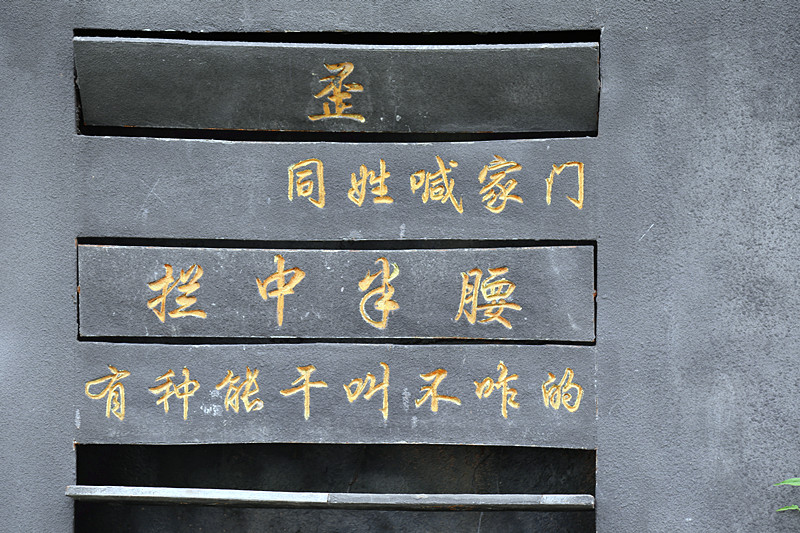 歪
同姓喊家门
拦中半腰
有种能干叫不咋的